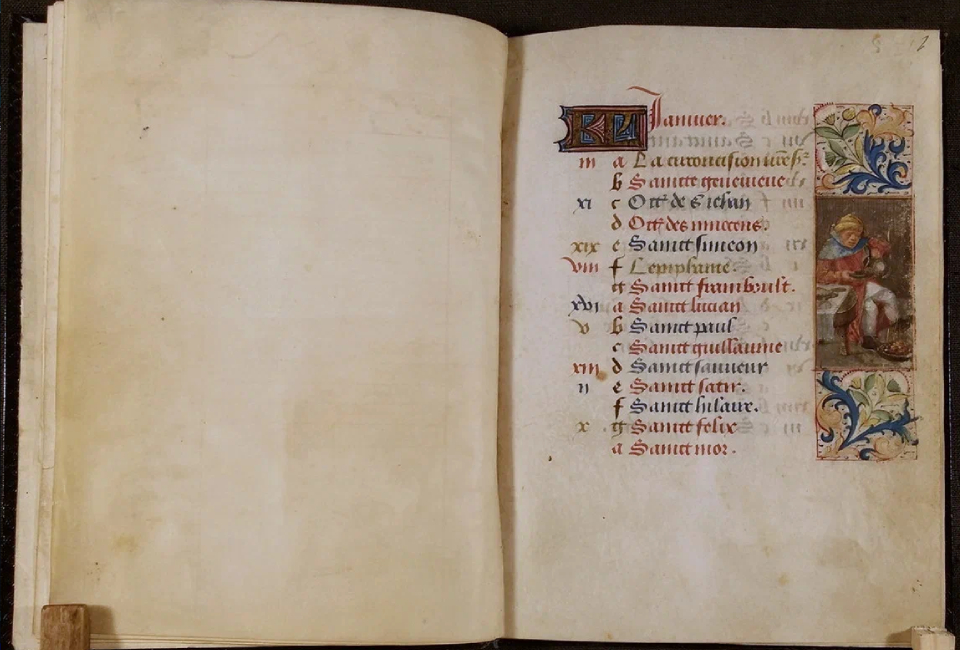 KL Januier.
iii a La circoncision
b Saincte geneuieue
xi c Oct de s iehan
d Oct des innocens.
xix e Sainct simeon
viii f Lepiphanie.
g Sainct framboult.
xvi a Sainct lucian
v b Sainct paul
c Sainct guillaume
xiii d Sainct sauueur
ii e Sainct satir.
f Sainct hilaire.
x g Sainct felix
a Sainct mor.